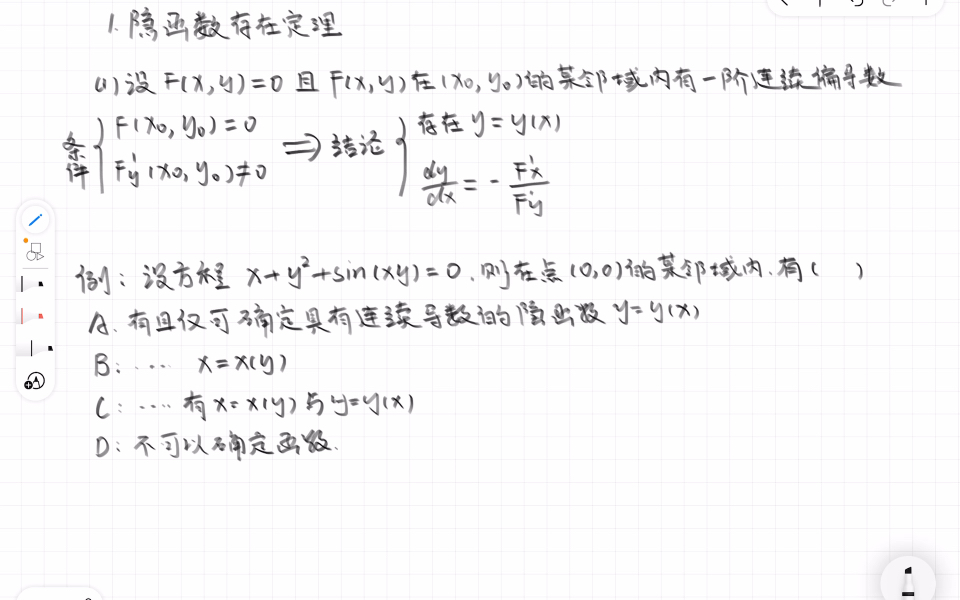 1. 隐函数存在定理
(1) 设 F(x,y)=0 且 F(x,y) 在 (x0,y0) 的某邻域内有一阶连续偏导数
条件 { F(x0,y0)=0 ⇒ 结论 { 存在 y=y(x)
F'y(x0,y0)≠0 dy/dx = - F'x/F'y
例: 设方程 x+y²+sin(xy)=0. 则在点(0,0)的某邻域内.有( )
A. 有且仅可确定具有连续导数的隐函数 y=y(x)
B: ... x=x(y)
C: .... 有 x=x(y) 与 y=y(x)
D: 不可以确定函数.